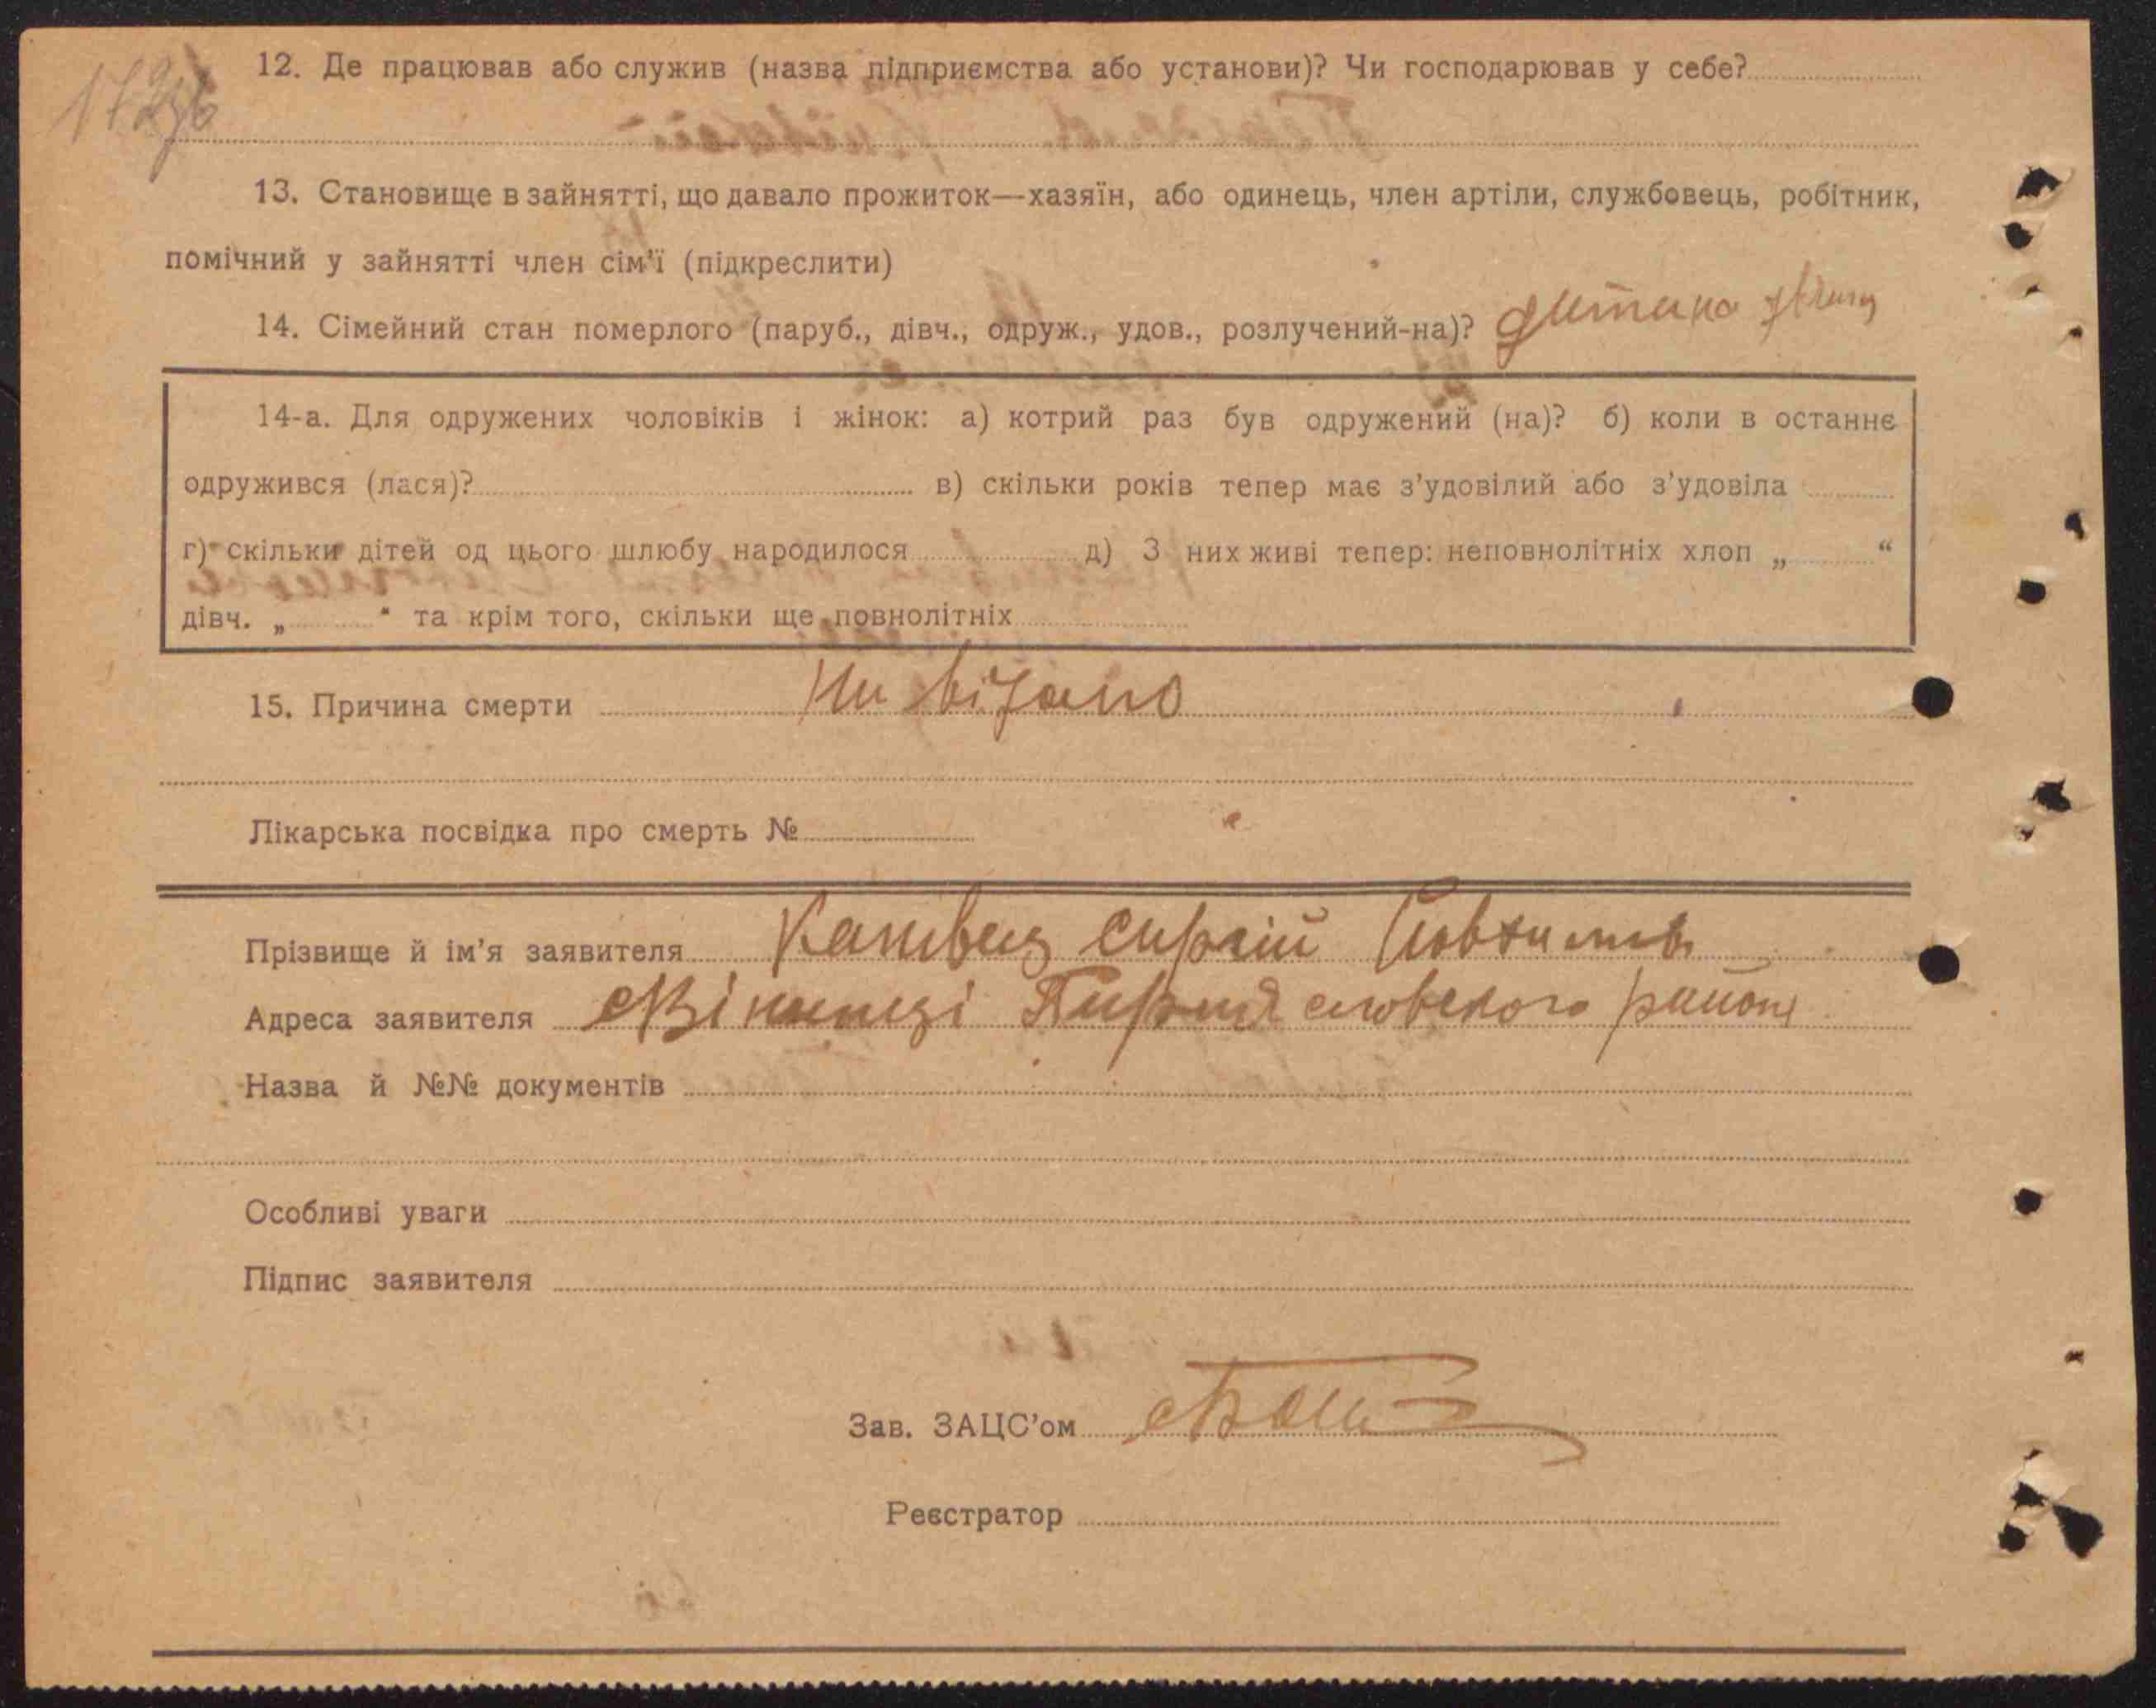 12. Де працював або служив (назва підприємства або установи)? Чи господарював у себе?
13. Становище в зайнятті, що давало прожиток—хазяїн, або одинець, член артіли, службовець, робітник,
помічний у зайнятті член сім'ї (підкреслити)
14. Сімейний стан померлого (паруб., дівч., одруж., удов., розлучений-на)? дитина
14-а. Для одружених чоловіків і жінок: а) котрий раз був одружений (на)? б) коли в останнє
одружився (лася)? в) скільки років тепер має з'удовілий або з'удовіла
г) скільки дітей од цього шлюбу народилося д) З них живі тепер: неповнолітніх хлоп „ “
дівч. „ “ та крім того, скільки ще повнолітніх
15. Причина смерти Ни відано
Лікарська посвідка про смерть №
Прізвище й ім'я заявителя Сиргій
Адреса заявителя района
Назва й №№ документів
Особливі уваги
Підпис заявителя
Зав. ЗАЦС'ом
Реєстратор